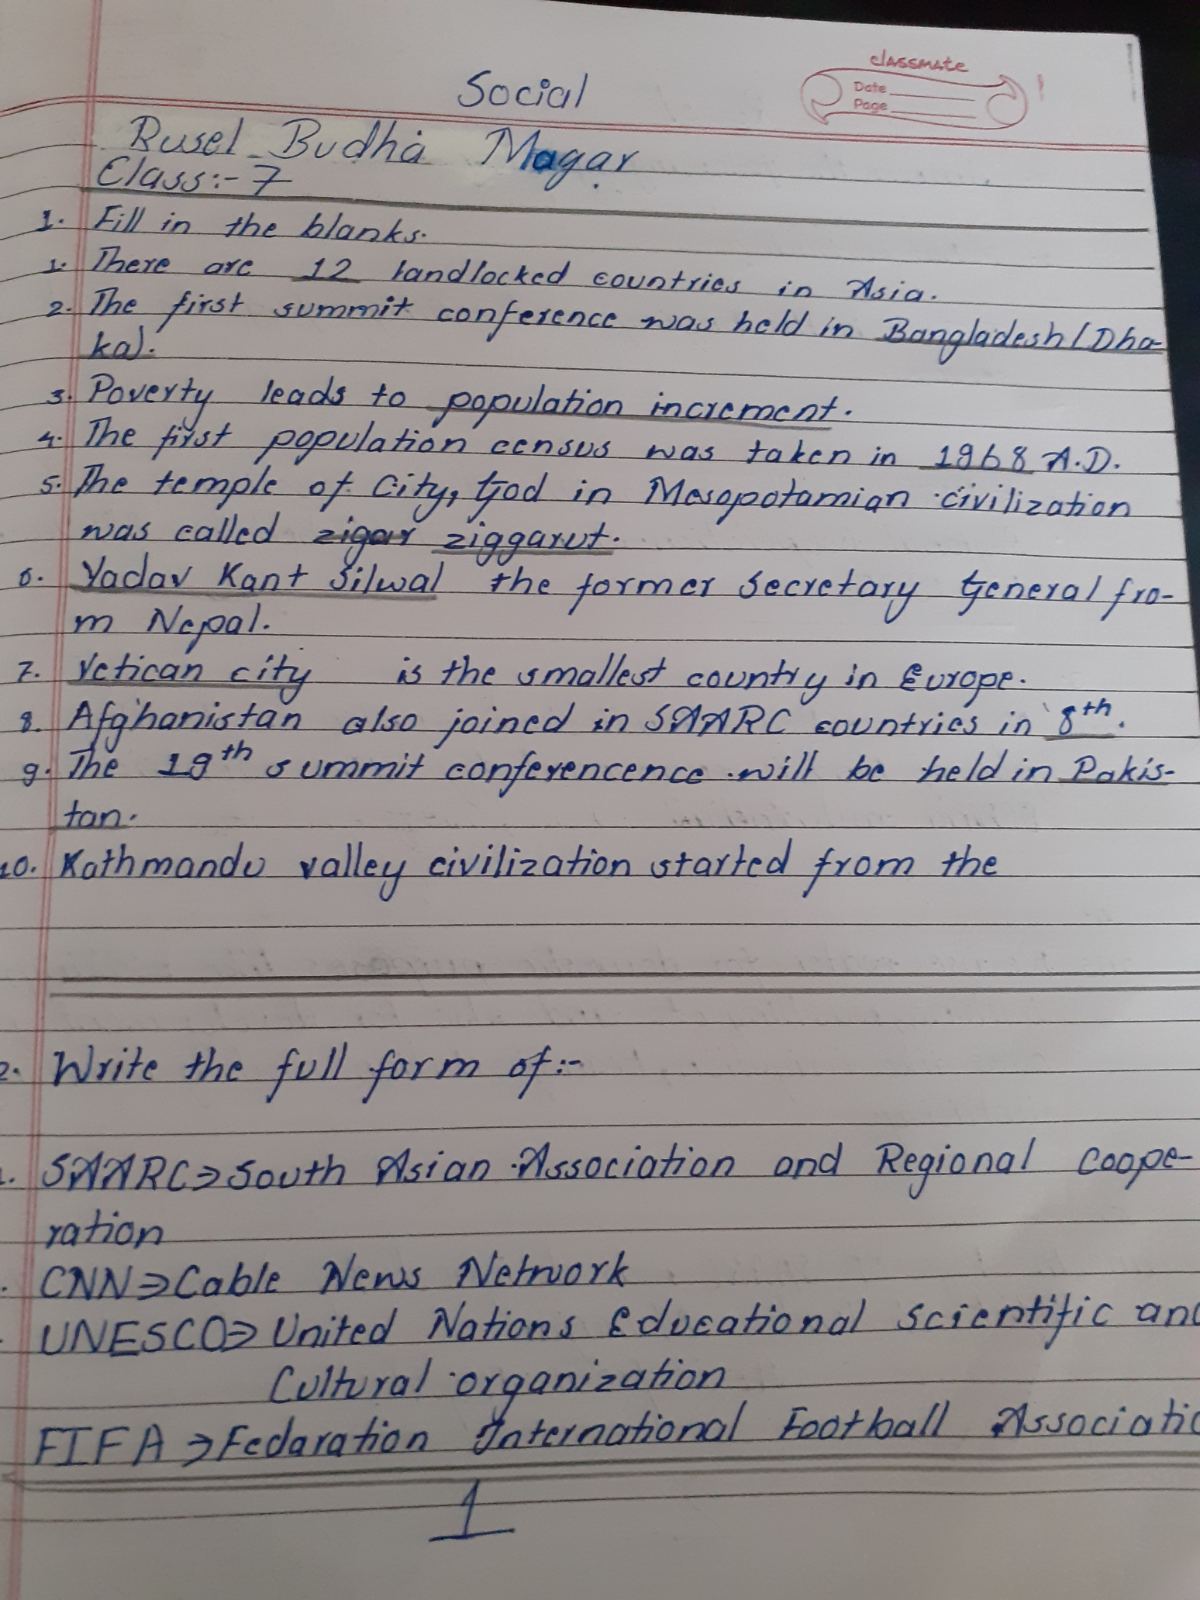 Social
classmate
Date
Page
Rusel Budha Magar
Class:- 7
1. Fill in the blanks.
1. There are 12 landlocked countries in Asia.
2. The first summit conference was held in Bangladesh (Dha-
ka).
3. Poverty leads to population increment.
4. The first population census was taken in 1968 A.D.
5. The temple of City, God in Mesopotamian civilization
was called zigar ziggarut.
6. Yadav Kant Silwal the former Secretary General fro-
m Nepal.
7. Vetican city is the smallest country in Europe.
8. Afghanistan also joined in SAARC countries in 8th.
9. The 19th summit conferencence will be held in Pakis-
tan.
10. Kathmandu valley civilization started from the
2. Write the full form of:-
SAARC⇒South Asian Association and Regional Coope-
ration
CNN⇒Cable News Network
UNESCO⇒United Nations Educational Scientific an
Cultural organization
FIFA⇒Fedaration International Football Associatio
1